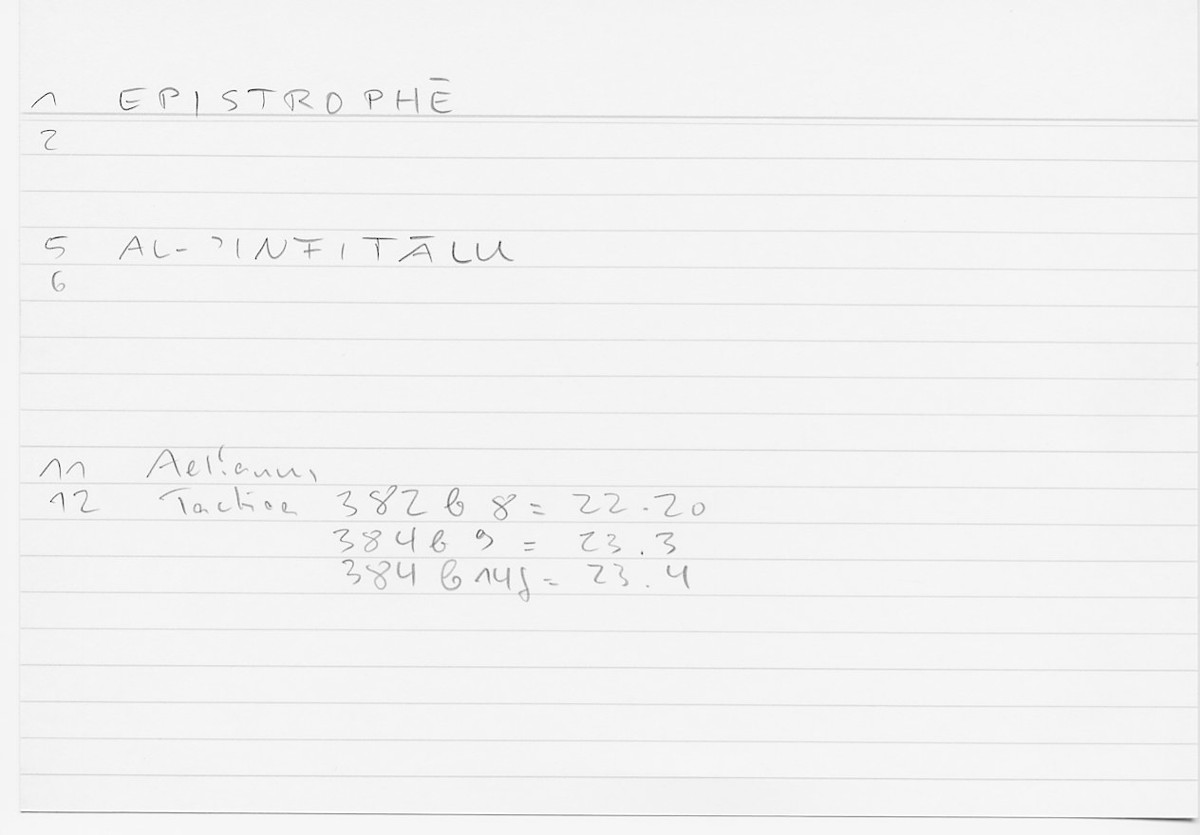 1 EPISTROPHĒ
2
5 AL-ʾINFITĀLU
6
11 Aelianus
12 Tactica 382 b 8 = 22.20
384 b 9 = 23.3
384 b 14f = 23.4